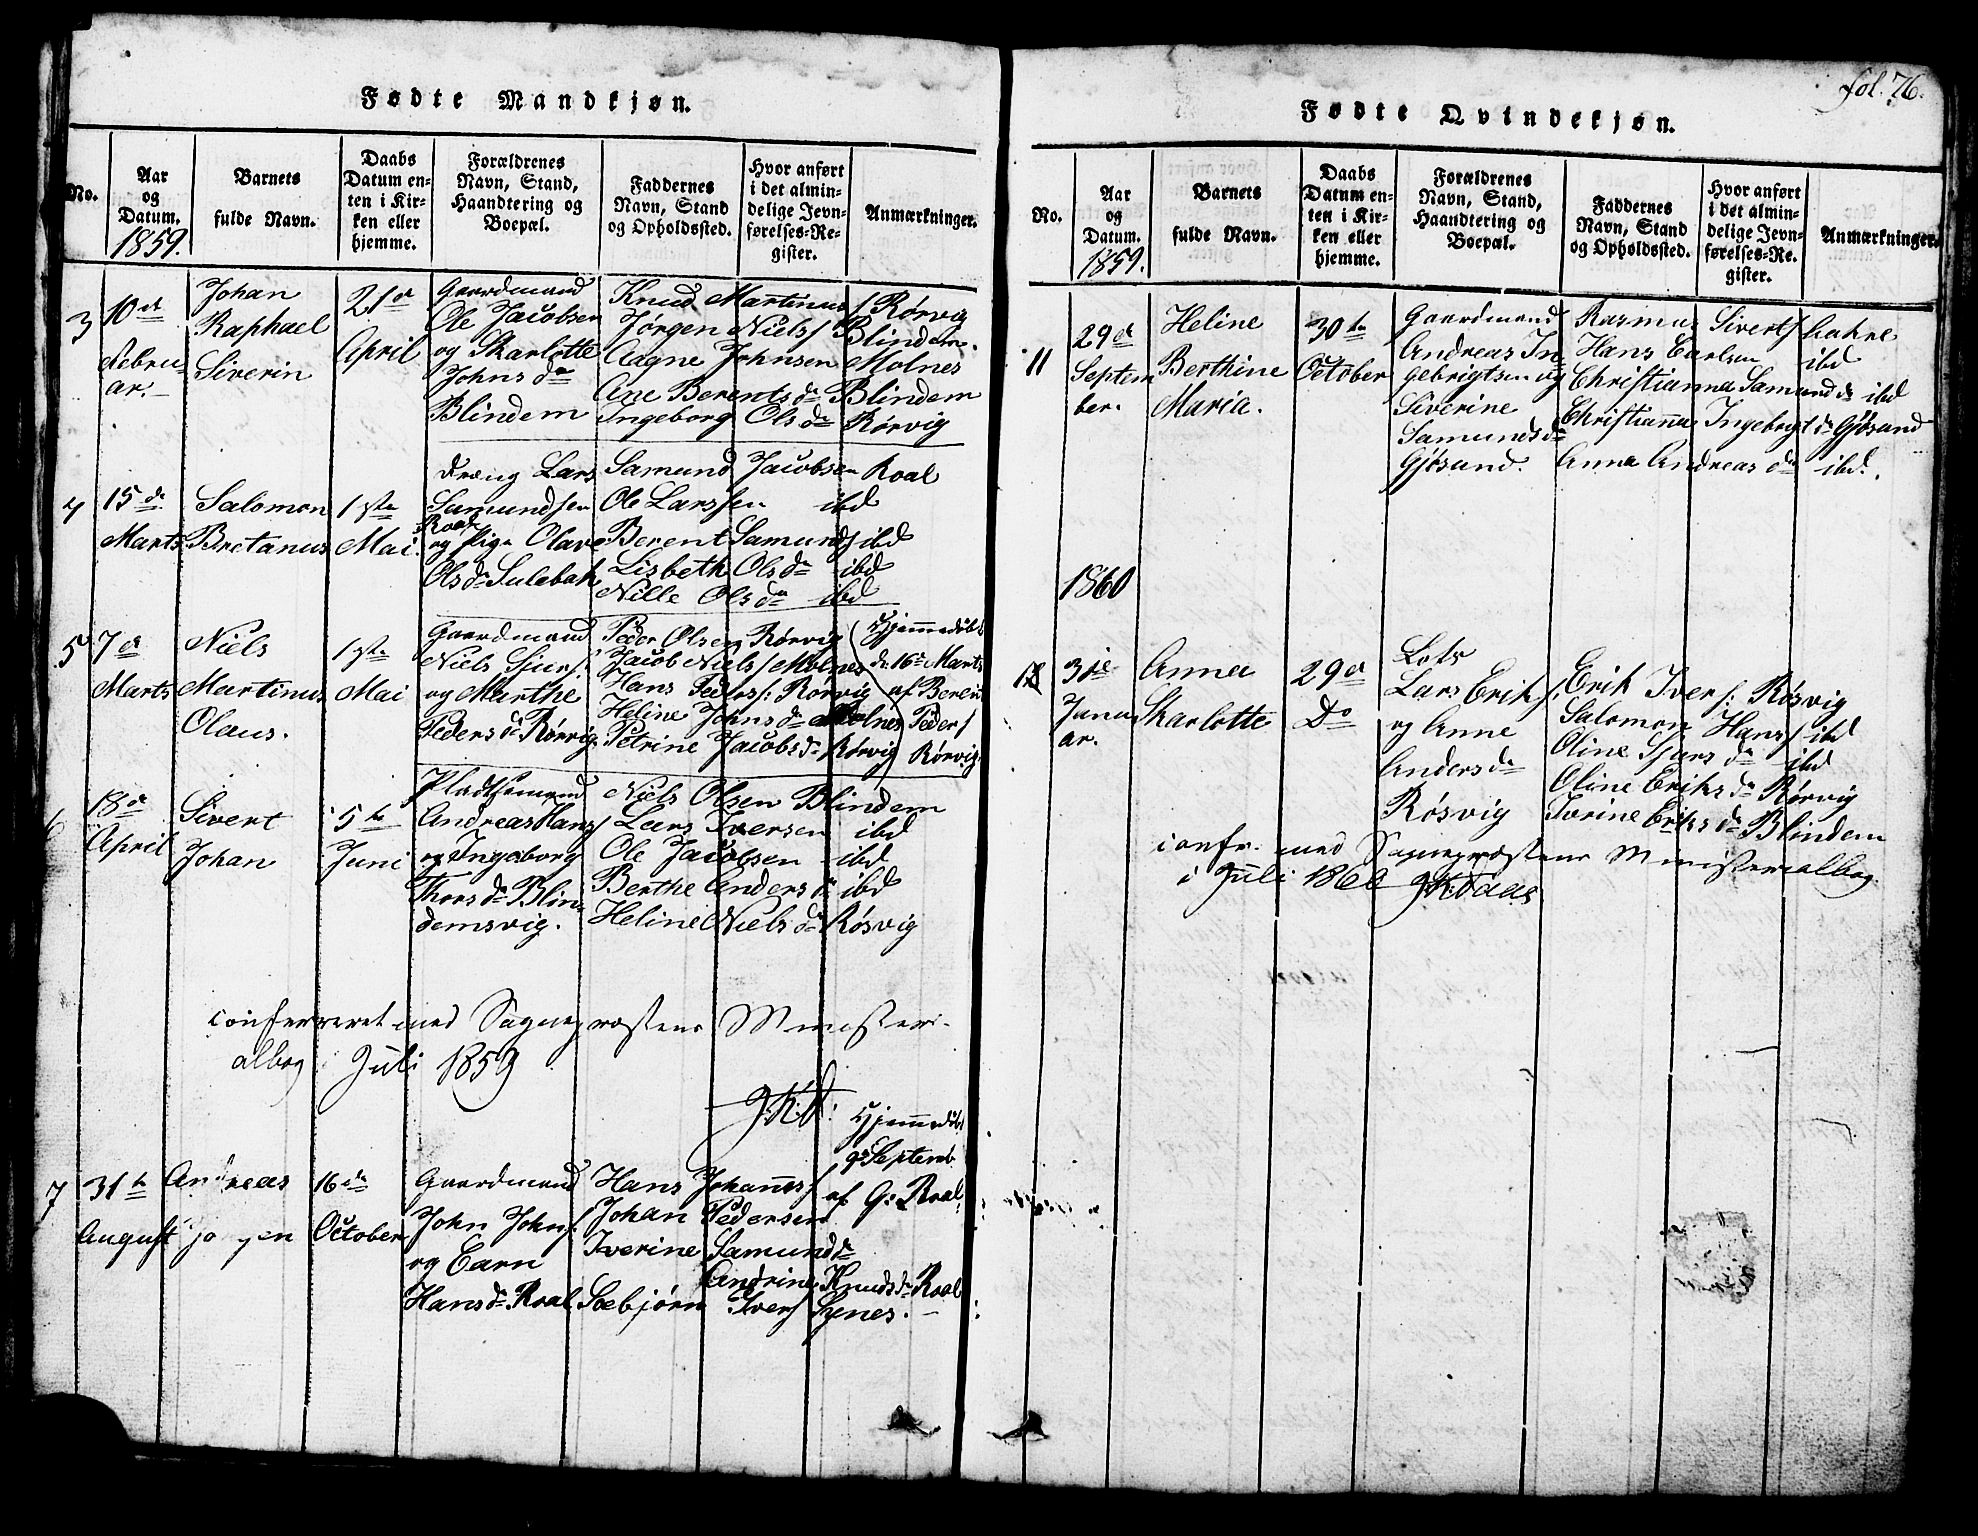 fol. 76.
Fødte Mandkjøn.
No.
Aar
og
Datum.
1859.
Barnets
fulde Navn.
Daabs
Datum en-
ten i Kir-
ken eller
hjemme.
Forældrenes
Navn, Stand,
Haandtering og
Boepæl.
Faddernes
Navn, Stand
og Opholdssted.
Hvor anført
i det almin-
delige Jevn-
førelses-Re-
gister.
Anmærkninger.
3
10de
Febru-
ar.
Johan
Raphael
Siverin
21de
April
Gaardmand
Ole Jacobsen
og Skarlotte
Johnsdr
Blindem
Knud Martinus Rørvig
Jørgen Niels Blindem.
Aagne Johnsen Molnes
Ane Berentsdr Blindem
Ingeborg Olsdr Rørvig
4
15de
Marts
Salomon
Bretanus
1ste
Mai.
Dreng Lars
Samundsen
Roal
og Pige Olave
Olsdr Sulebak
Samund Jacobsen Roal
Ole Larssen ibd
Berent Samunds ibd
Lisbeth Olsdr ibd
Nille Olsdr ibd
5
7de
Marts
Niels
Martinus
Olaus.
1ste
Mai
Gaardmand
Niels Sjurs:
og Marthe
Pedersdr Rørvig.
Peder Olsen Rørvig
Jacob Niels Molnes
Hans Peders: Rørvig
Heline Johnsdr Molnes
Petrine Jacobsdr Rørvig
Hjemmedøbt
d. 16de Marts
af Berent
Peders
Rørvig.
6
18de
April
Sivert
Johan
5te
Juni
Pladsemand
Andreas Hans
og Ingeborg
Thorsdr Blin-
demsvig.
Niels Olsen Blindem
Lars Iversen ibd
Ole Jacobsen ibd
Berthe Andersdr ibd
Heline Nielsdr Røsvig
Conferreret med Sognepræstens Ministeri-
albog i Juli 1859
J.K.D:
7
31te
August
Andreas
Jørgen
16de
October
Gaardmand
John Johns
og Carn
Hansdr Roal
Hans Johannes
Johan Pedersen
Iverine Samundsdr
Andrine Knudsdr Roal
Sæbjørn Ivers Synes.
Hjemmedøbt
9de Septemb
af G: Roal.
Fødte Qvindekjøn.
No.
Aar
og
Datum.
1859.
Barnets
fulde Navn.
Daabs
Datum en-
ten i Kir-
ken eller
hjemme.
Forældrenes
Navn, Stand,
Haandtering og
Boepæl.
Faddernes
Navn, Stand
og Opholdssted.
Hvor anført
i det almin-
delige Jevn-
førelses-Re-
gister.
Anmærkninger.
11
29de
Septem
ber.
Heline
Berthine
Maria.
30te
October
Gaardmand
Andreas In-
gebrigtsen og
Siverine
Samundsdr
Gjøsund.
Rasmus Siverts
Hans Carlsen ibd
Christianna Samundsdr ibd
Christianna Ingebrigtdr Gjøsund
Anna Andreasdr ibd.
1860
3die
Janu
ar.
Anna
Skarlotte
29de
Do
Lars Eriks:
og Anne
Andersdr
Røsvig
Erik Ivers: Røsvig
Salomon Hans ibd
Oline Sjursdr ibd
Oline Eriksdr Rørvig
Ivrine Eriksdr Blindem
Confr. med Sognepræstens Ministerialbog
i Juli 1860 J.K. Daae